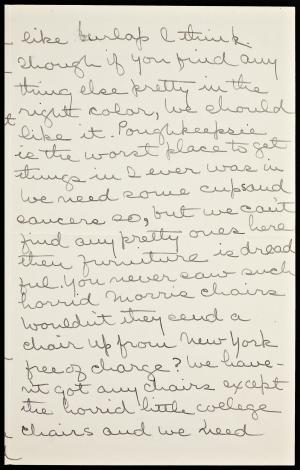 like burlap I think.
Though if you find any
thing else pretty in the
right color, we should
like it. Poughkeepsie
is the worst place to get
things in I ever was in
we need some cups and
saucers so, but we can't
find any pretty ones here
their furniture is dread
ful. You never saw such
horrid Morris chairs
wouldn't they send a
chair up from New York
free of charge? We have-
n't got any chairs except
the horrid little college
chairs and we need